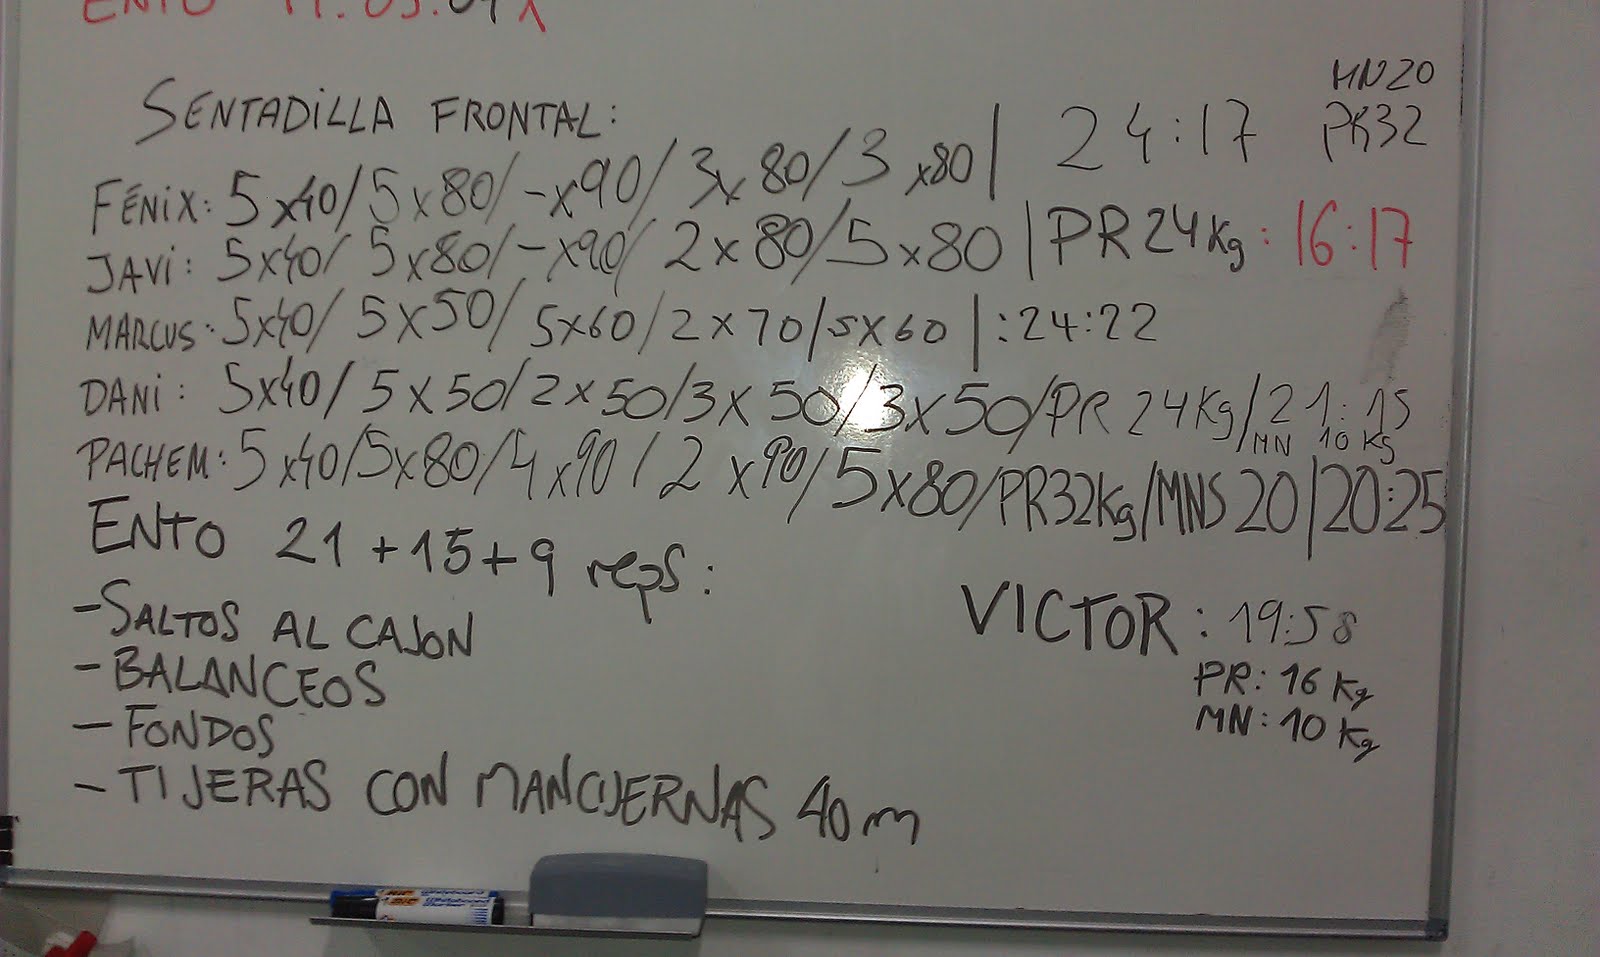 ENTO
SENTADILLA FRONTAL:
MN20
PR32
FÉNIX: 5x40/5x80/-x90/3x80/3x80| 24:17
JAVI: 5x40/5x80/-x90/2x80/5x80|PR 24Kg: 16:17
MARCUS: 5x40/5x50/5x60/2x70/5x60|:24:22
DANI: 5x40/5x50/2x50/3x50/3x50/PR 24Kg/21:15
MN 10 KG
PACHEM: 5x40/5x80/4x90/2x90/5x80/PR32Kg/MNS 20|20:25
ENTO 21+15+9 reps:
-SALTOS AL CAJON
-BALANCEOS
-FONDOS
-TIJERAS CON MANCUERNAS 40m
VICTOR: 19:58
PR: 16 Kg
MN: 10 Kg
BIC